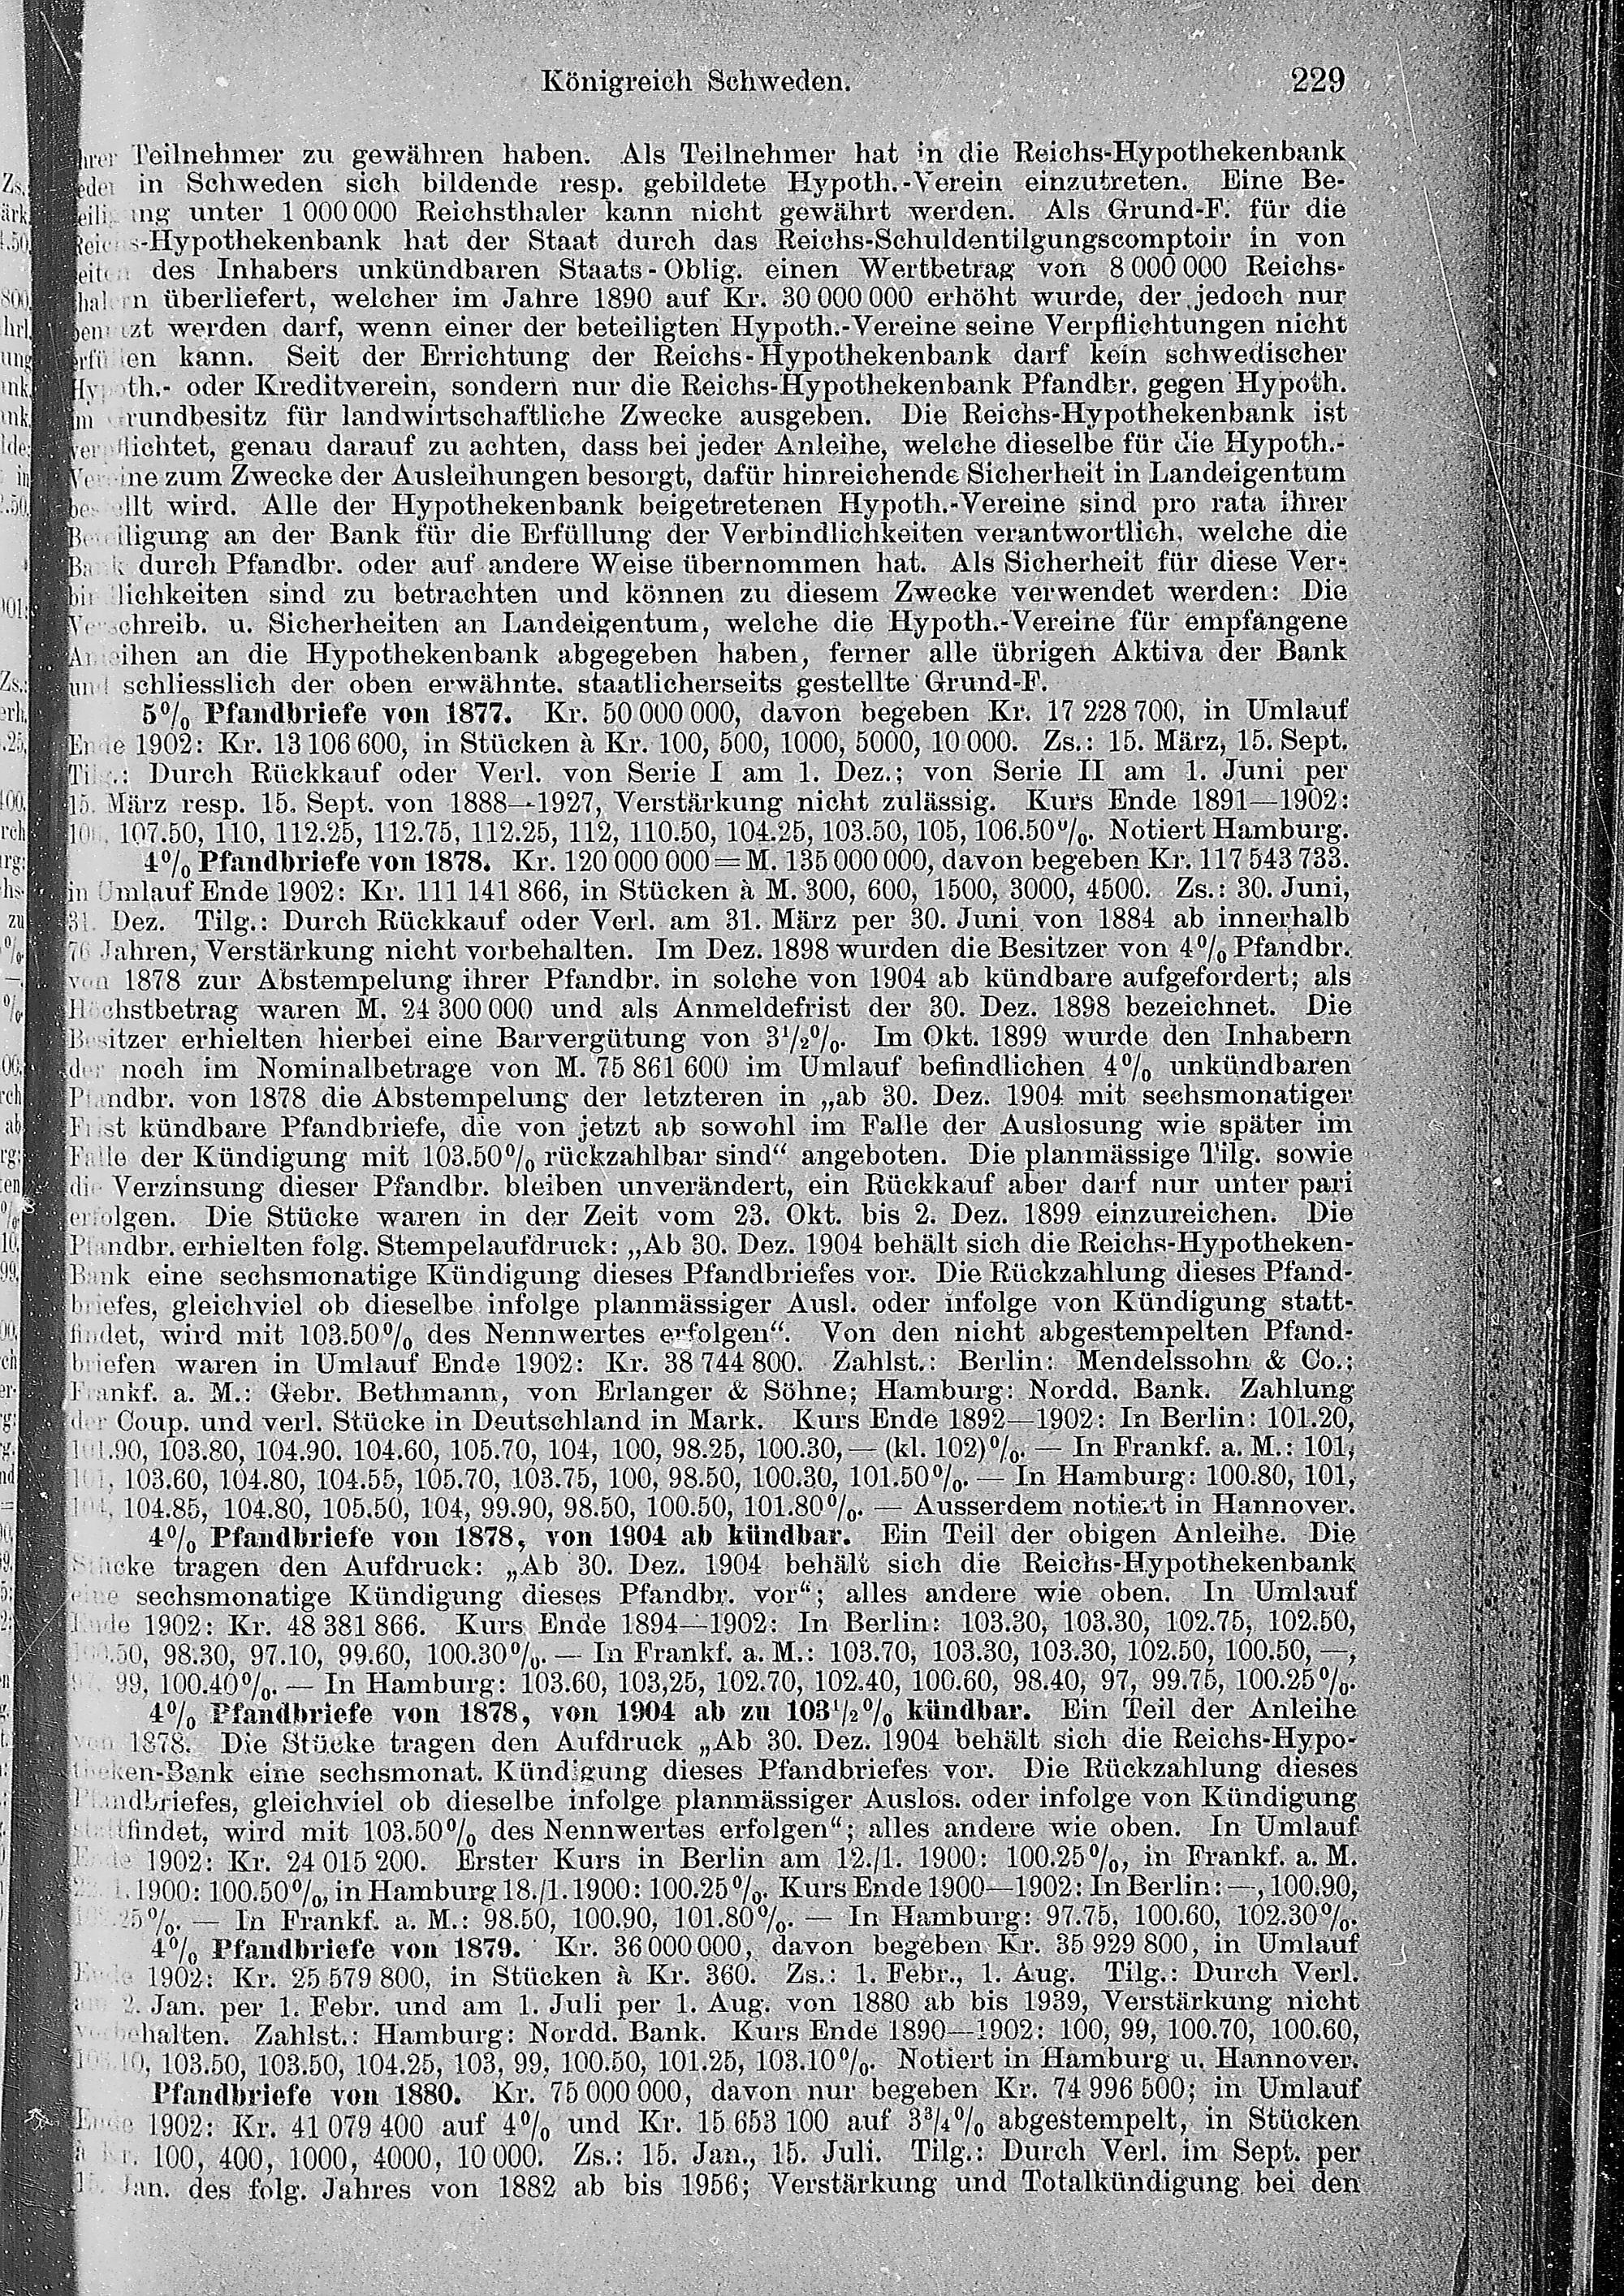 Königreich Schweden. 229
ihrer Teilnehmer zu gewähren haben. Als Teilnehmer hat in die Reichs-Hypothekenbank
jeder in Schweden sich bildende resp. gebildete Hypoth.-Verein einzutreten. Eine Be-
teiligung unter 1 000 000 Reichsthaler kann nicht gewährt werden. Als Grund-F. für die
Reichs-Hypothekenbank hat der Staat durch das Reichs-Schuldentilgungscomptoir in von
seiten des Inhabers unkündbaren Staats-Oblig. einen Wertbetrag von 8 000 000 Reichs-
thalern überliefert, welcher im Jahre 1890 auf Kr. 30 000 000 erhöht wurde, der jedoch nur
benutzt werden darf, wenn einer der beteiligten Hypoth.-Vereine seine Verpflichtungen nicht
erfüllen kann. Seit der Errichtung der Reichs-Hypothekenbank darf kein schwedischer
Hypoth.- oder Kreditverein, sondern nur die Reichs-Hypothekenbank Pfandbr. gegen Hypoth.
in Grundbesitz für landwirtschaftliche Zwecke ausgeben. Die Reichs-Hypothekenbank ist
verpflichtet, genau darauf zu achten, dass bei jeder Anleihe, welche dieselbe für die Hypoth.-
Vereine zum Zwecke der Ausleihungen besorgt, dafür hinreichende Sicherheit in Landeigentum
bestellt wird. Alle der Hypothekenbank beigetretenen Hypoth.-Vereine sind pro rata ihrer
Beteiligung an der Bank für die Erfüllung der Verbindlichkeiten verantwortlich, welche die
Bank durch Pfandbr. oder auf andere Weise übernommen hat. Als Sicherheit für diese Ver-
bindlichkeiten sind zu betrachten und können zu diesem Zwecke verwendet werden: Die
Verschreib. u. Sicherheiten an Landeigentum, welche die Hypoth.-Vereine für empfangene
Anleihen an die Hypothekenbank abgegeben haben, ferner alle übrigen Aktiva der Bank
und schliesslich der oben erwähnte. staatlicherseits gestellte Grund-F.
5% Pfandbriefe von 1877. Kr. 50 000 000, davon begeben Kr. 17 228 700, in Umlauf
Ende 1902: Kr. 13 106 600, in Stücken à Kr. 100, 500, 1000, 5000, 10 000. Zs.: 15. März, 15. Sept.
Tilg.: Durch Rückkauf oder Verl. von Serie I am 1. Dez.; von Serie II am 1. Juni per
15. März resp. 15. Sept. von 1888—1927, Verstärkung nicht zulässig. Kurs Ende 1891—1902:
107.50, 110, 112.25, 112.75, 112.25, 112, 110.50, 104.25, 103.50, 105, 106.50%. Notiert Hamburg.
4% Pfandbriefe von 1878. Kr. 120 000 000 = M. 135 000 000, davon begeben Kr. 117 543 733.
in Umlauf Ende 1902: Kr. 111 141 866, in Stücken à M. 300, 600, 1500, 3000, 4500. Zs.: 30. Juni,
31. Dez. Tilg.: Durch Rückkauf oder Verl. am 31. März per 30. Juni von 1884 ab innerhalb
76 Jahren, Verstärkung nicht vorbehalten. Im Dez. 1898 wurden die Besitzer von 4% Pfandbr.
von 1878 zur Abstempelung ihrer Pfandbr. in solche von 1904 ab kündbare aufgefordert; als
Höchstbetrag waren M. 24 300 000 und als Anmeldefrist der 30. Dez. 1898 bezeichnet. Die
Besitzer erhielten hierbei eine Barvergütung von 3½%. Im Okt. 1899 wurde den Inhabern
der noch im Nominalbetrage von M. 75 861 600 im Umlauf befindlichen 4% unkündbaren
Pfandbr. von 1878 die Abstempelung der letzteren in „ab 30. Dez. 1904 mit sechsmonatiger
Frist kündbare Pfandbriefe, die von jetzt ab sowohl im Falle der Auslosung wie später im
Falle der Kündigung mit 103.50% rückzahlbar sind“ angeboten. Die planmässige Tilg. sowie
die Verzinsung dieser Pfandbr. bleiben unverändert, ein Rückkauf aber darf nur unter pari
erfolgen. Die Stücke waren in der Zeit vom 23. Okt. bis 2. Dez. 1899 einzureichen. Die
Pfandbr. erhielten folg. Stempelaufdruck: „Ab 30. Dez. 1904 behält sich die Reichs-Hypotheken-
Bank eine sechsmonatige Kündigung dieses Pfandbriefes vor. Die Rückzahlung dieses Pfand-
briefes, gleichviel ob dieselbe infolge planmässiger Ausl. oder infolge von Kündigung statt-
findet, wird mit 103.50% des Nennwertes erfolgen“. Von den nicht abgestempelten Pfand-
briefen waren in Umlauf Ende 1902: Kr. 38 744 800. Zahlst.: Berlin: Mendelssohn & Co.;
Frankf. a. M.: Gebr. Bethmann, von Erlanger & Söhne; Hamburg: Nordd. Bank. Zahlung
der Coup. und verl. Stücke in Deutschland in Mark. Kurs Ende 1892—1902: In Berlin: 101.20,
101.90, 103.80, 104.90. 104.60, 105.70, 104, 100, 98.25, 100.30, — (kl. 102)%. — In Frankf. a. M.: 101,
101, 103.60, 104.80, 104.55, 105.70, 103.75, 100, 98.50, 100.30, 101.50%. — In Hamburg: 100.80, 101,
104, 104.85, 104.80, 105.50, 104, 99.90, 98.50, 100.50, 101.80%. — Ausserdem notiert in Hannover.
4% Pfandbriefe von 1878, von 1904 ab kündbar. Ein Teil der obigen Anleihe. Die
Stücke tragen den Aufdruck: „Ab 30. Dez. 1904 behält sich die Reichs-Hypothekenbank
eine sechsmonatige Kündigung dieses Pfandbr. vor“; alles andere wie oben. In Umlauf
Ende 1902: Kr. 48 381 866. Kurs Ende 1894—1902: In Berlin: 103.30, 103.30, 102.75, 102.50,
100.50, 98.30, 97.10, 99.60, 100.30%. — In Frankf. a. M.: 103.70, 103.30, 103.30, 102.50, 100.50, —,
99, 100.40%. — In Hamburg: 103.60, 103,25, 102.70, 102.40, 100.60, 98.40, 97, 99.75, 100.25%.
4% Pfandbriefe von 1878, von 1904 ab zu 103½% kündbar. Ein Teil der Anleihe
von 1878. Die Stücke tragen den Aufdruck „Ab 30. Dez. 1904 behält sich die Reichs-Hypo-
theken-Bank eine sechsmonat. Kündigung dieses Pfandbriefes vor. Die Rückzahlung dieses
Pfandbriefes, gleichviel ob dieselbe infolge planmässiger Auslos. oder infolge von Kündigung
stattfindet, wird mit 103.50% des Nennwertes erfolgen“; alles andere wie oben. In Umlauf
Ende 1902: Kr. 24 015 200. Erster Kurs in Berlin am 12./1. 1900: 100.25%, in Frankf. a. M.
1900: 100.50%, in Hamburg 18./1. 1900: 100.25%. Kurs Ende 1900—1902: In Berlin: —, 100.90,
— In Frankf. a. M.: 98.50, 100.90, 101.80%. — In Hamburg: 97.75, 100.60, 102.30%.
4% Pfandbriefe von 1879. Kr. 36 000 000, davon begeben Kr. 35 929 800, in Umlauf
Ende 1902: Kr. 25 579 800, in Stücken à Kr. 360. Zs.: 1. Febr., 1. Aug. Tilg.: Durch Verl.
am 2. Jan. per 1. Febr. und am 1. Juli per 1. Aug. von 1880 ab bis 1939, Verstärkung nicht
vorbehalten. Zahlst.: Hamburg: Nordd. Bank. Kurs Ende 1890—1902: 100, 99, 100.70, 100.60,
103.50, 103.50, 104.25, 103, 99, 100.50, 101.25, 103.10%. Notiert in Hamburg u. Hannover.
Pfandbriefe von 1880. Kr. 75 000 000, davon nur begeben Kr. 74 996 500; in Umlauf
Ende 1902: Kr. 41 079 400 auf 4% und Kr. 15 653 100 auf 3¾% abgestempelt, in Stücken
à Kr. 100, 400, 1000, 4000, 10 000. Zs.: 15. Jan., 15. Juli. Tilg.: Durch Verl. im Sept. per
15. Jan. des folg. Jahres von 1882 ab bis 1956; Verstärkung und Totalkündigung bei den